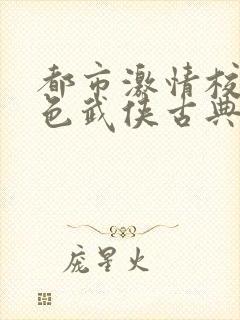 都市激情校
色武侠古典
庞星火